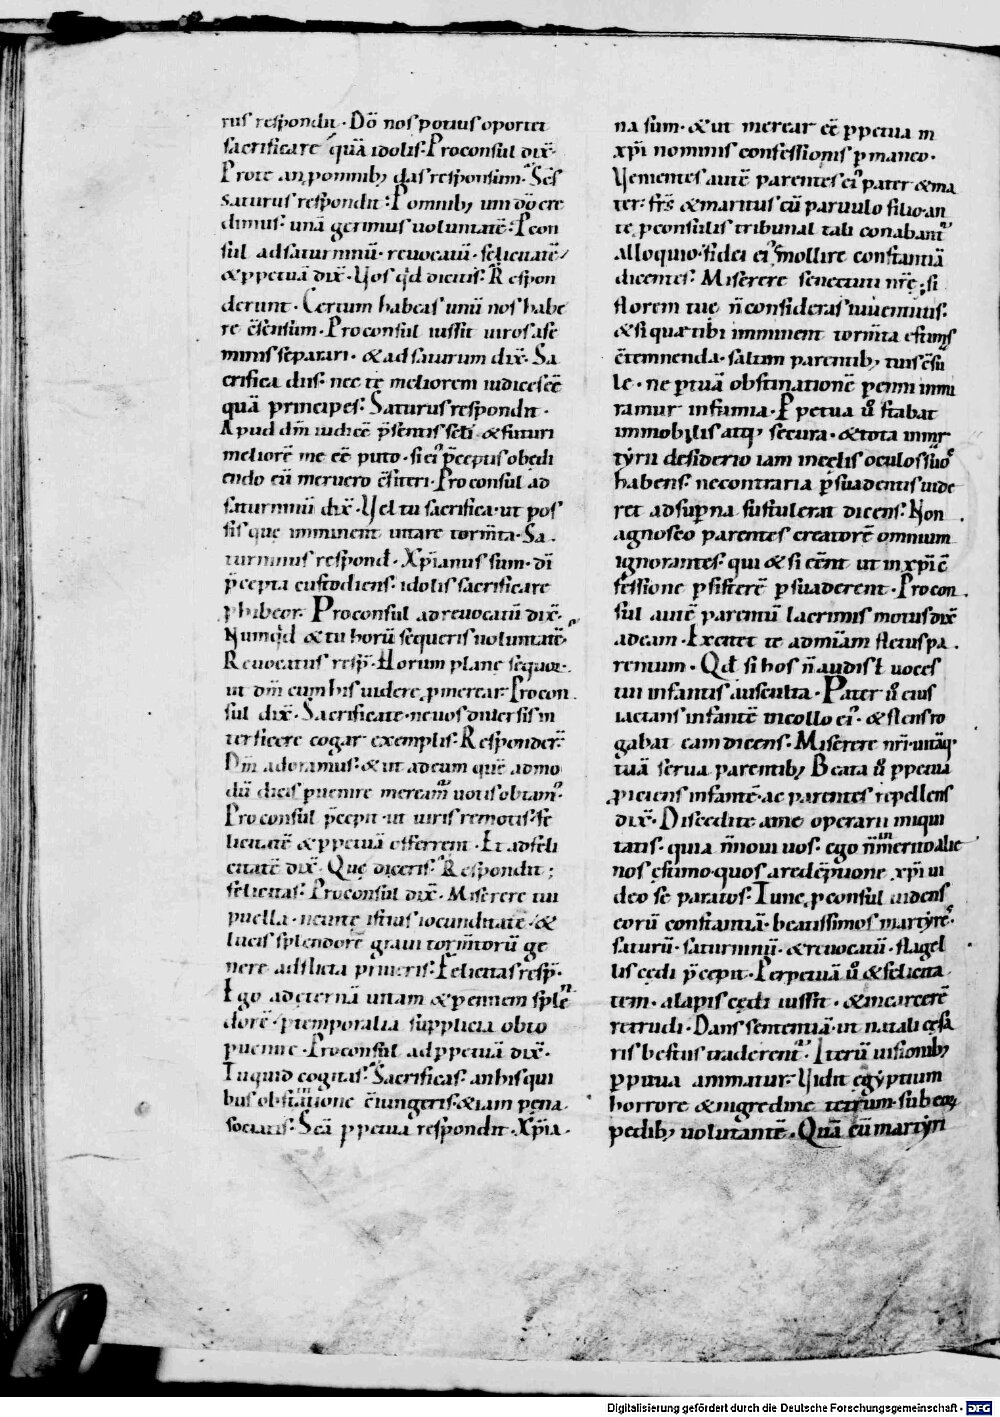 rus respondit · Dō nos potius oportet
sacrificare quā idolis · Proconsul dix̄ ·
Prote an ꝓ omnibꝫ das responsum · Scs̄
saturus respondit · P omnibꝫ
dimus · unā gerimus voluntatē · Pcon
sul ad saturninū · revocatū · felicitatē
& ppetuā dix̄ · Vos qd dicitis · Respon
derunt · Certum habeas unū nos habe
re c̄sensum · Proconsul iussit viros a fe
minis separari · & ad saturum dix̄ · Sa
crifica diis · nec te meliorem iudices ēē
quā principes · Saturus respondit ·
Apud dm̄ iudicē p̄sentis scli & futuri
meliorē me ēē puto · si ei᾽ p̄ceptis obedi
endo eū meruero c̄fiteri · Proconsul ad
saturninū dix̄ · Vel tu sacrifica · ut pos
sis que imminent vitare torm̄ta · Sa
turninus respond̄ · Xp̄ianus sum · dī
p̄cepta custodiens · idolis sacrificare
phibeor · Proconsul ad revocatū dix̄ ·
Numqd & tu horū sequeris voluntatē ·
Revocatus resp̄ · Horum plane sequor ·
ut dm̄ cum his videre ꝓmerear · Procon
sul dix̄ · Sacrificate · ne vos diversis in
terficere cogar exemplis · Responder̄ ·
Dm̄ adoramus · & ut ad eum quē admo
dū dicis puenire meream᾽ votis obtam᾽ ·
Proconsul p̄cepit · ut viris remotis · fe
licitatē & ppetuā offerrent · Et ad feli
citatē dix̄ · Quę diceris · Respondit ;
felicitas · Proconsul dix̄ · Miserere tui
puella · ne inte istius iocunditatē · &
lucis splendorē gravi torm̄torū ge
nere adflicta priveris · Felicitas resp̄ ·
Ego ad eternā vitam & pennem splē
dorē · p temporalia supplicia opto
puenire · Proconsul ad ppetuā dix̄ ·
Tu quid cogitas · Sacrificas · an his qui
bus obstinatione c̄iungeris · & iam pęna
sociaris · Scā ppetua respondit · Xp̄ia
na sum · & ut merear ēē ppetua in
xpī nominis confessionis pmaneo ·
Venientes autē parentes ei᾽ pater & ma
ter · frs̄ & maritus cū parvulo filio · an
te pconsulis tribunal tali conabant᾽
alloquio · fidei ei᾽ emollire constantiā
dicentes · Miserere senectuti nr̄ę · si
florem tuę n̄ consideras iuventutis ·
& si quae tibi imminent torm̄ta estimas
c̄temnenda · saltim parentibꝫ tuis c̄su
le · ne p tuā obstinationē penni inni
ramur infamia · Ppetua ū stabat
immobilis atqꝫ secura · & tota in mar
tyrii desiderio iam in cęlis oculos suos
habens · ne contraria p̄suadentis vide
ret ad superna sustulerat dicens · Non
agnosco parentes creatorē omnium
ignorantes · qui & si ēēnt ut in xpī c̄
fessione psisterē psuaderent · Procon
sul autē parentū lacrimis motus dix̄
ad eam · Excitet te ad mīam fletus pa
rentum · Qd si hos n̄ audis · vel voces
tui infantis ausculta · Pater ū eius
iactans infantē in collo ei᾽ · & flens ro
gabat eam dicens · Miserere nri · vitāqꝫ
tuā serva parentibꝫ Beata ū ppetua
ꝓiciens infantē · ac parentes repellens
dix̄ · Discedite a me operarii iniqui
tatis · quia n̄ novi vos · ego n̄ inmerito alie
nos ęstimo · quos a redēptione xpī vi
deo sēparatos · Tunc pconsul videns
eorū constantiā · beatissimos martyres ·
saturū · saturninū · & revocatū · flagel
lis cędi p̄cepit · Perpetuā ū & felicita
tem · alapis cędi iussit · & in carcerē
retrudi · Dans sententiā · ut natali cęsa
ris bestiis traderent᾽ · Iterū visionibꝫ
ppetua animatur · Vidit ęgyptium
horrore & nigredine tetrum · sub eoꝝ
pedibꝫ volutantē · Quā cū martyri
Digitalisierung gefördert durch die Deutsche Forschungsgemeinschaft - DFG